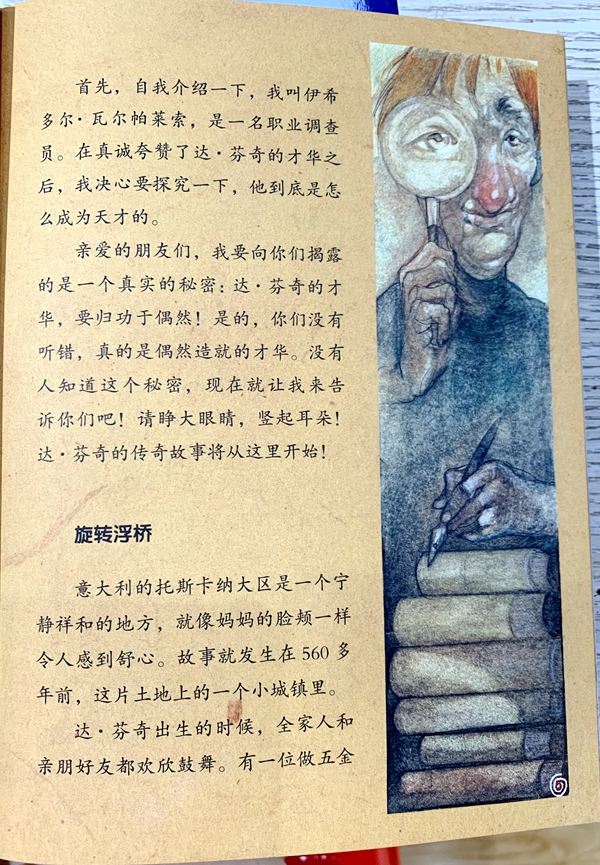 首先，自我介绍一下，我叫伊希
多尔·瓦尔帕莱索，是一名职业调查
员。在真诚夸赞了达·芬奇的才华之
后，我决心要探究一下，他到底是怎
么成为天才的。
亲爱的朋友们，我要向你们揭露
的是一个真实的秘密：达·芬奇的才
华，要归功于偶然！是的，你们没有
听错，真的是偶然造就的才华。没有
人知道这个秘密，现在就让我来告
诉你们吧！请睁大眼睛，竖起耳朵！
达·芬奇的传奇故事将从这里开始！
旋转浮桥
意大利的托斯卡纳大区是一个宁
静祥和的地方，就像妈妈的脸颊一样
令人感到舒心。故事就发生在 560 多
年前，这片土地上的一个小城镇里。
达·芬奇出生的时候，全家人和
亲朋好友都欢欣鼓舞。有一位做五金